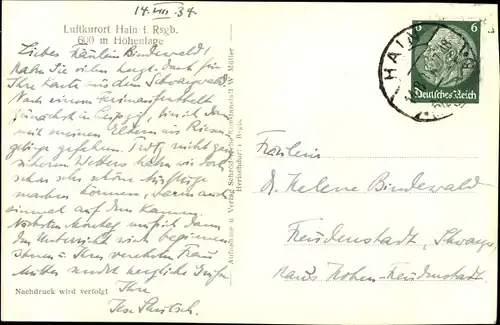 14. VIII. 34
Luftkurort Hain i. Rsgb.
600 m Höhenlage
Liebes Fräulein Bindewald!
Haben Sie vielen herzl. Dank für
Ihre Karte aus dem Schwarzwald.
Nach einem Ferienaufenthalte
zunächst in Leipzig, bin ich dann
mit meinen Eltern ins Riesen-
gebirge gefahren. Trotz nicht ganz
sicheren Wetters haben wir doch
schon sehr schöne Ausflüge
machen können, waren auch
einmal auf dem Kamm.
Nächsten Montag muß ich dann
den Unterricht wieder beginnen.
Ihnen u. Ihrer verehrten Frau
Mutter sendet herzliche Grüße
Ihre
Nachdruck wird verfolgt
Aufnahme u. Verlag Schröder'sche Kunstanstalt W. Müller
Herischdorf i. Rsgb.
HAIN
6 6
Deutsches Reich
Fräulein
Dr. Helene Bindewald
Freudenstadt, Schwarzw.
Haus Hohen-Freudenstadt